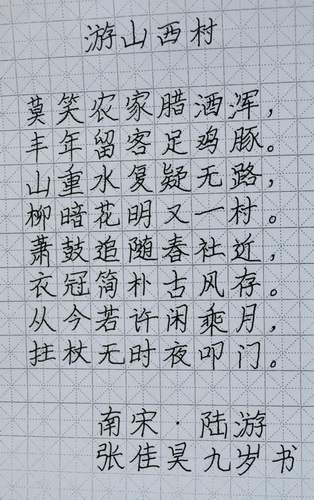 游山西村
莫笑农家腊酒浑，
丰年留客足鸡豚。
山重水复疑无路，
柳暗花明又一村。
萧鼓追随春社近，
衣冠简朴古风存。
从今若许闲乘月，
拄杖无时夜叩门。
南宋·陆游
张佳昊九岁书